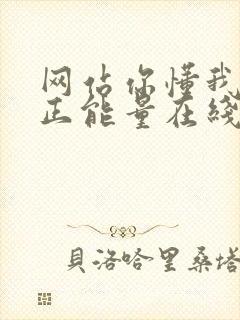 网站你懂我
正能量在线
貝洛哈里桑塔